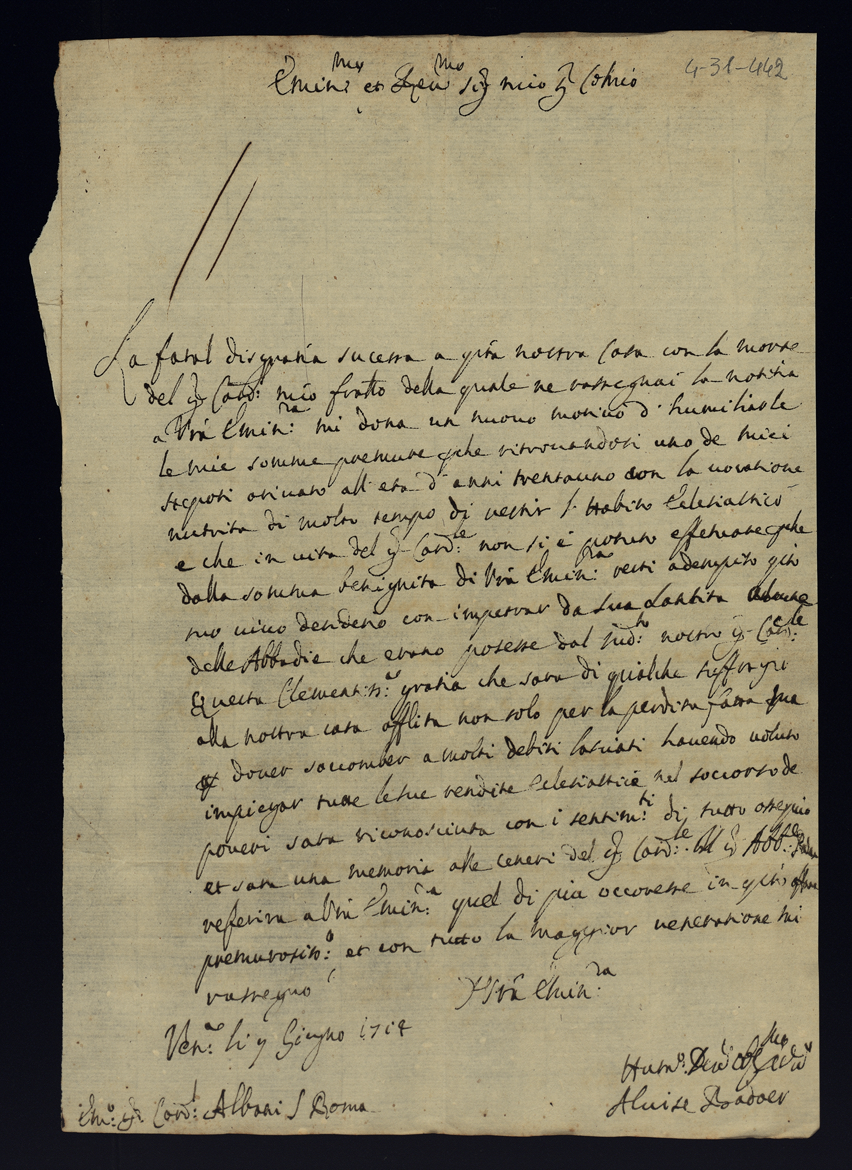 4-31-442
Emin:mo et Reu:mo Sig mio Sig Colmo
La fatal disgratia sucessa a q̃sta nostra Casa con la morte
del Sig Card: mio fratto della quale ne rassegnai la notitia
a Vrã Emin:za mi dona un nuouo motiuo d'humiliarle
le mie somme premure, che ritrouandosi uno de miei
Nepoti ariuato all'eta d'anni trentauno con la uocatione
nutrita di molto tempo di uestir l'Habito Eclesiastico
e che in uita del Sig Card:le non si è potuto effetuare, che
dalla somma benignita di Vrã Emin:za resti adempito q̃sto
suo uiuo desiderio con impetrar da Sua Santita alcune
delle Abbadie che erano possesse dal sud:to nostro Sig Card:le
Questa Clementiss:a gratia che sara di qualche suffragio
alla nostra casa afflita non solo per la perdita fatta ma
p̃ douer soccomber a molti debiti lasciati hauendo uoluto
impiegar tutte le sue rendite Eclesiastiche nel soccorso de
poueri sara riconosciuta con i sentim:ti di tutto ossequio
et sara una memoria alle ceneri del Sig Card:le. Il Sig Abb:e
referira a Vrã Emin:a quel di piu occoresse in q̃sto affare
premurosiss:o et con tutto la maggior ueneratione mi
rassegno
Di Vrã Emin:za
Ven:a li 7 Giugno 1714
Hum:o Deu:o
Aluise Badoer
Em:o Sig Card:l Albani S Roma